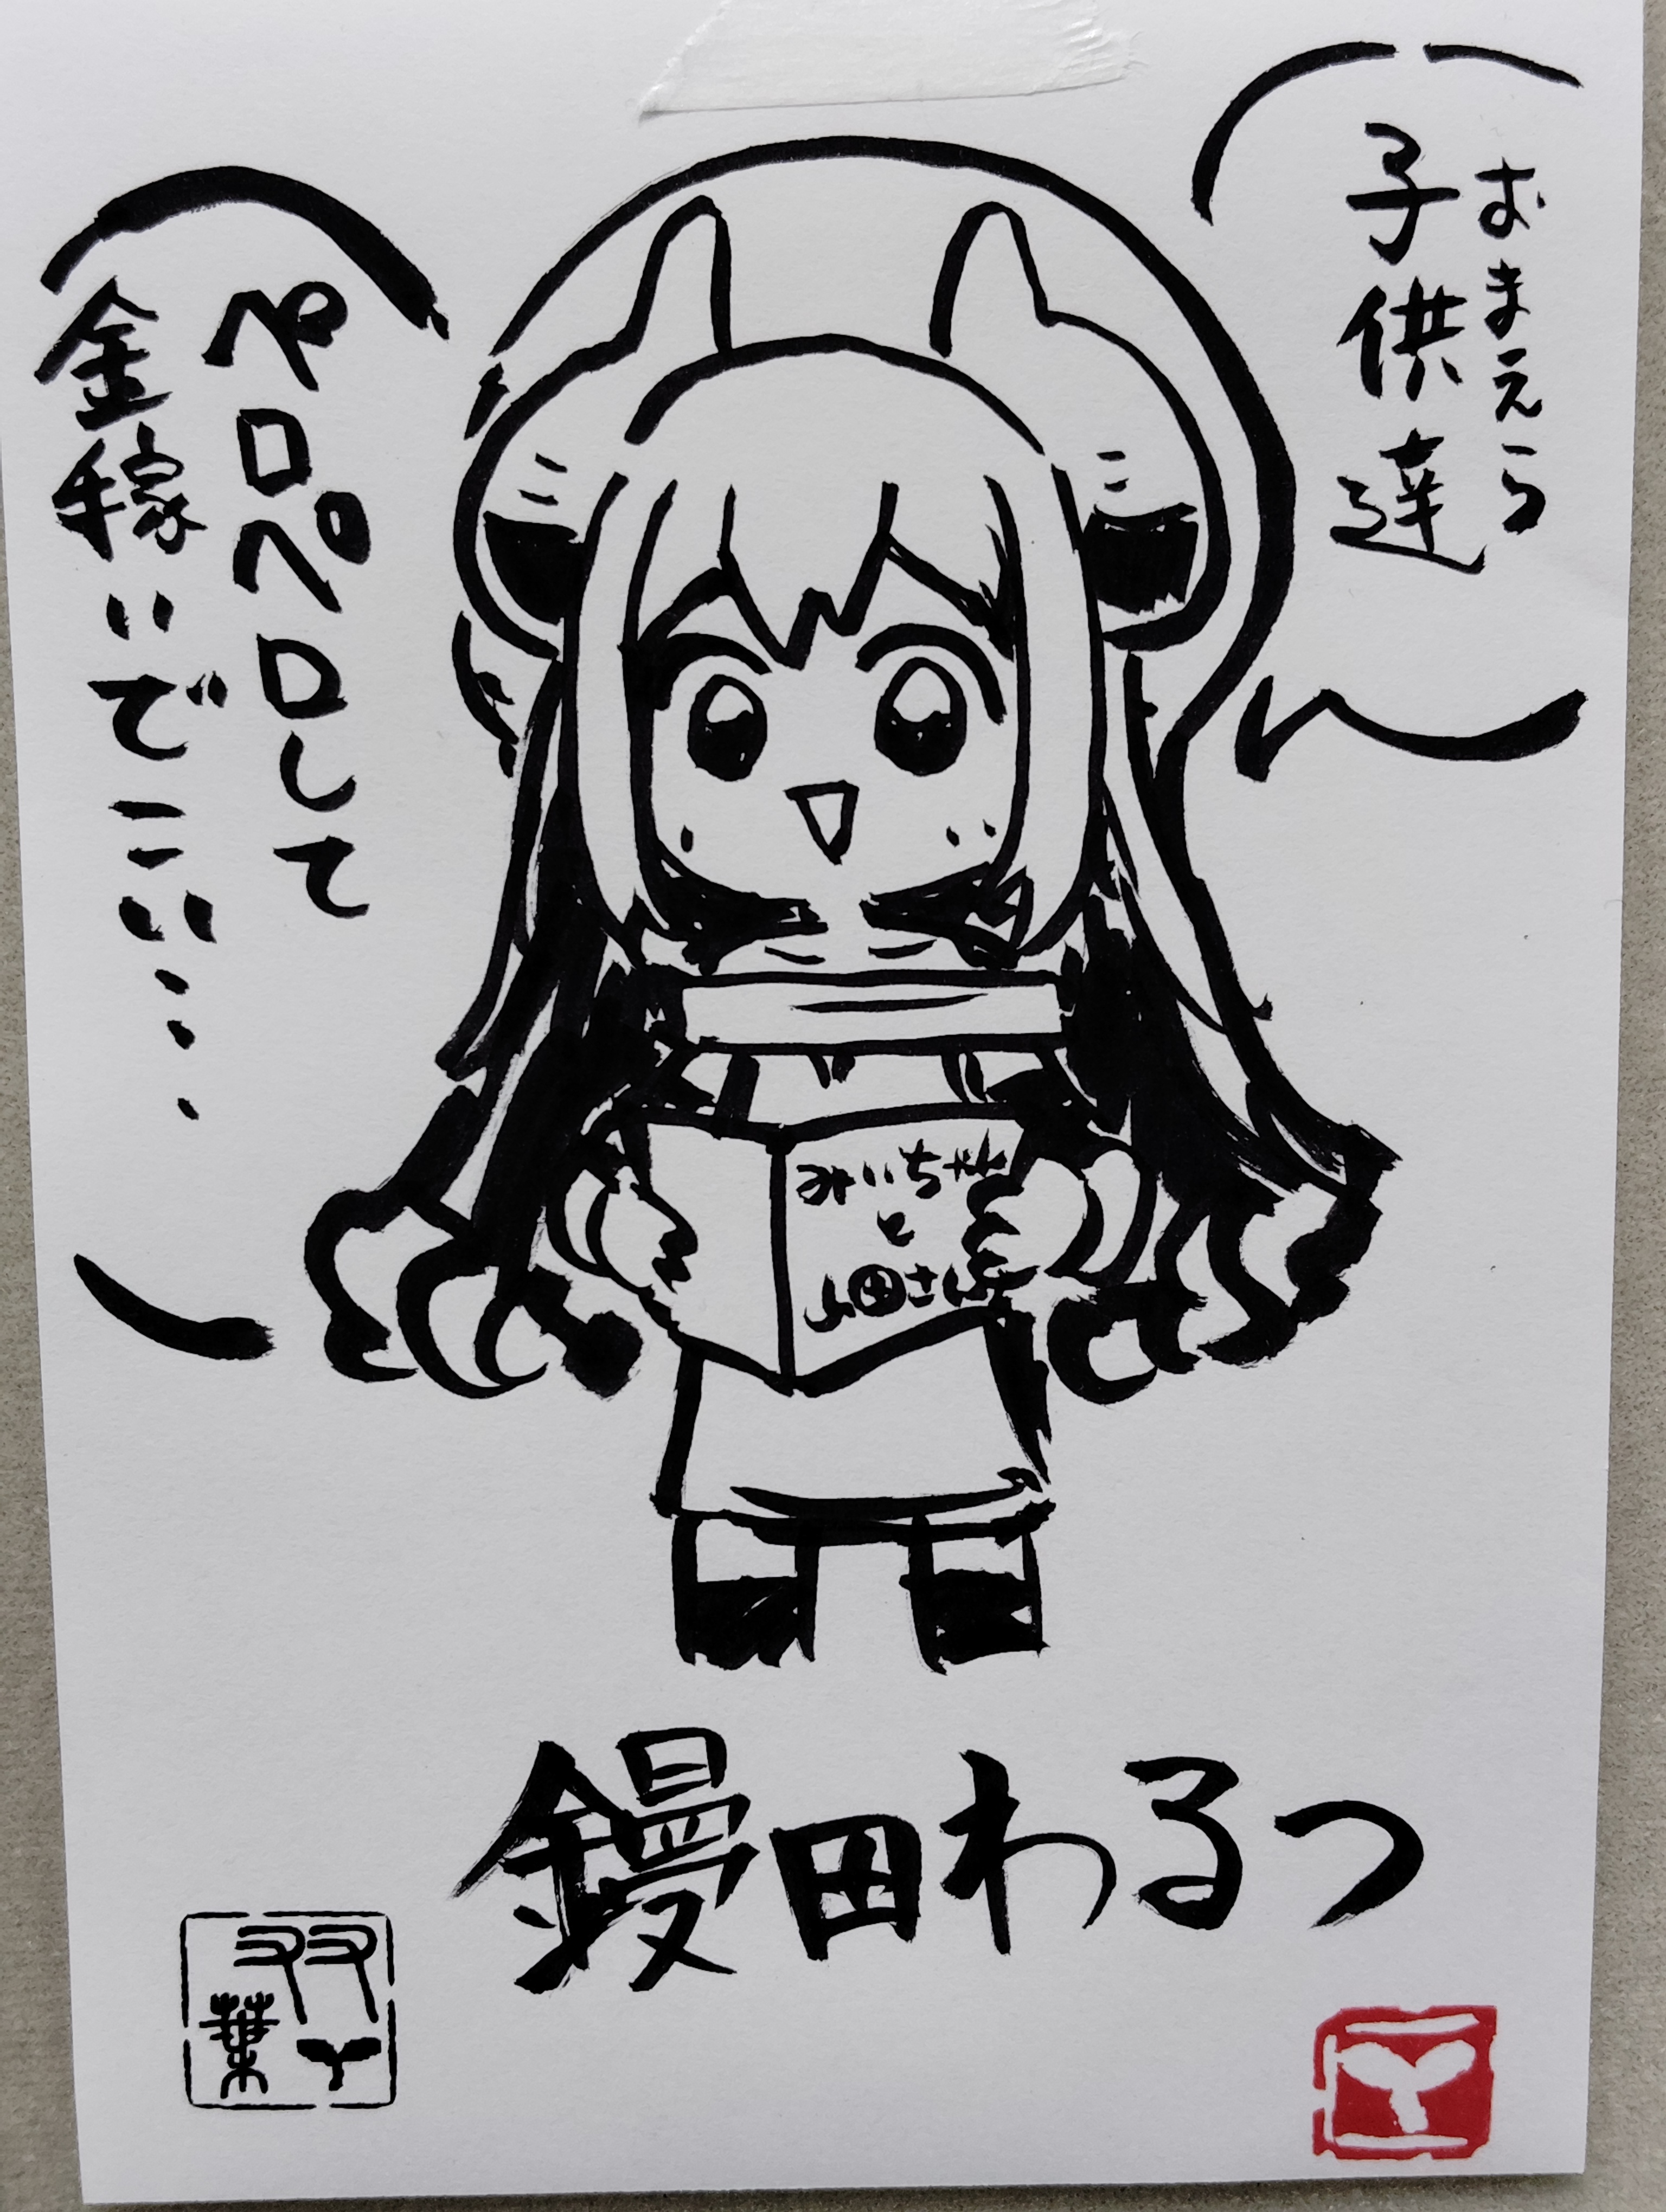 おまえら
子供達
ペロペロして
金稼いでこい……
みいちゃん
と
山田さん
鏝田わるつ
双葉